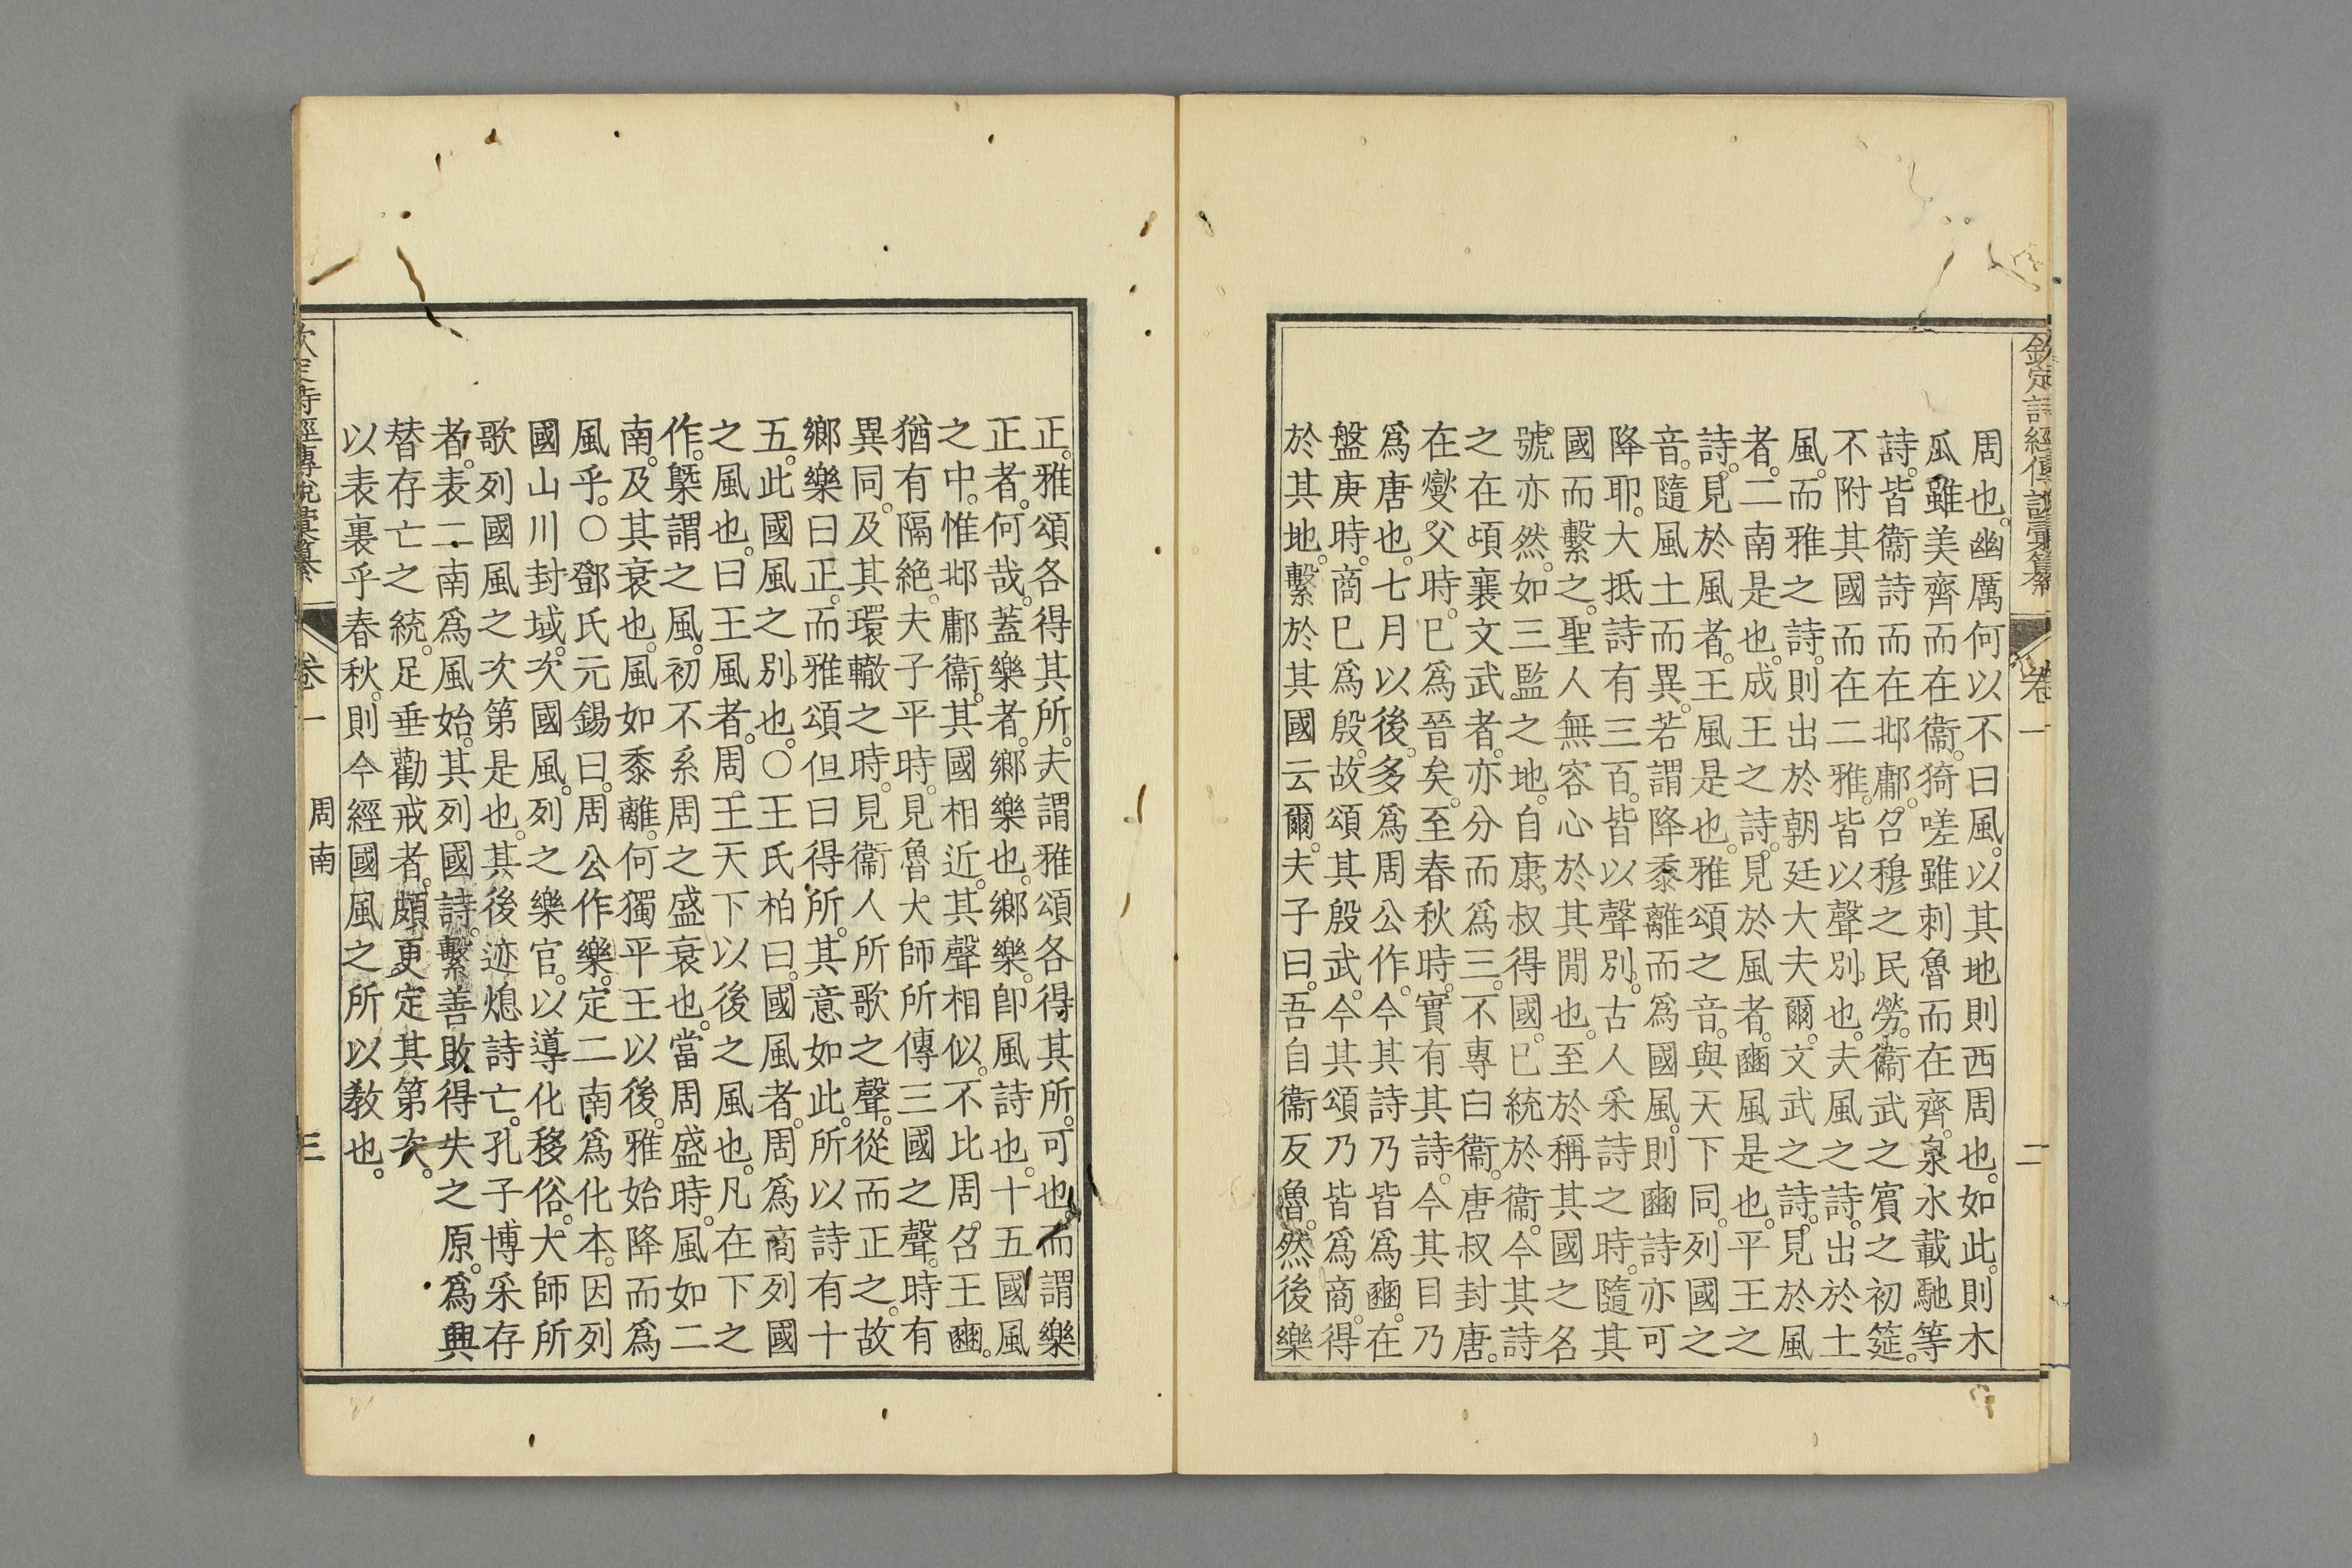 欽定詩經傳說彙纂
卷一
二
周也。幽厲何以不曰風。以其地則西周也。如此。則木
瓜雖美齊而在衞。猗嗟雖刺魯而在齊。泉水載馳等
詩。皆衞詩而在邶鄘。召穆之民勞。衞武之賓之初筵。
不附其國而在二雅。皆以聲別也。夫風之詩。出於土
風。而雅之詩。則出於朝廷大夫爾。文武之詩。見於風
者。二南是也。成王之詩。見於風者。豳風是也。平王之
詩。見於風者。王風是也。雅頌之音。與天下同。列國之
音。隨風土而異。若謂降黍離而爲國風。則豳詩亦可
降耶。大抵詩有三百。皆以聲別。古人采詩之時。隨其
國而繫之。聖人無容心於其閒也。至於稱其國之名
號。亦然。如三監之地。自康叔得國。巳統於衞。今其詩
之在頃襄文武者。亦分而爲三。不專曰衞。唐叔封唐。
在燮父時。巳爲晉矣。至春秋時。實有其詩。今其目乃
爲唐也。七月以後。多爲周公作。今其詩乃皆爲豳。在
盤庚時。商巳爲殷。故頌其殷武。今其頌乃皆爲商。得
於其地。繫於其國云爾。夫子曰。吾自衞反魯。然後樂
正。雅頌各得其所。夫謂雅頌各得其所。可也。而謂樂
正者。何哉。蓋樂者。鄉樂也。鄉樂。卽風詩也。十五國風
之中。惟邶鄘衞。其國相近。其聲相似。不比周。召王豳。
猶有隔絶。夫子平時。見魯大師所傳三國之聲。時有
異同。及其環轍之時。見衞人所歌之聲。從而正之。故
鄉樂曰正。而雅頌但曰得所。其意如此。所以詩有十
五。此國風之別也。〇王氏柏曰。國風者。周爲商列國
之風也。曰王風者。周王天下以後之風也。凡在下之
作。槩謂之風。初不系周之盛衰也。當周盛時。風如二
南。及其衰也。風如黍離。何獨平王以後。雅始降而爲
風乎。〇鄧氏元錫曰。周公作樂。定二南爲化本。因列
國山川封域。次國風。列之樂官。以導化移俗。大師所
歌列國風之次第是也。其後迹熄詩亡。孔子博采存
者。表二南爲風始。其列國詩。繫善敗得失之原。爲興
替存亡之統。足垂勸戒者。頗更定其第次。
以表裏乎春秋。則今經國風之所以敎也。
欽定詩經傳說彙纂
卷一
周南
三